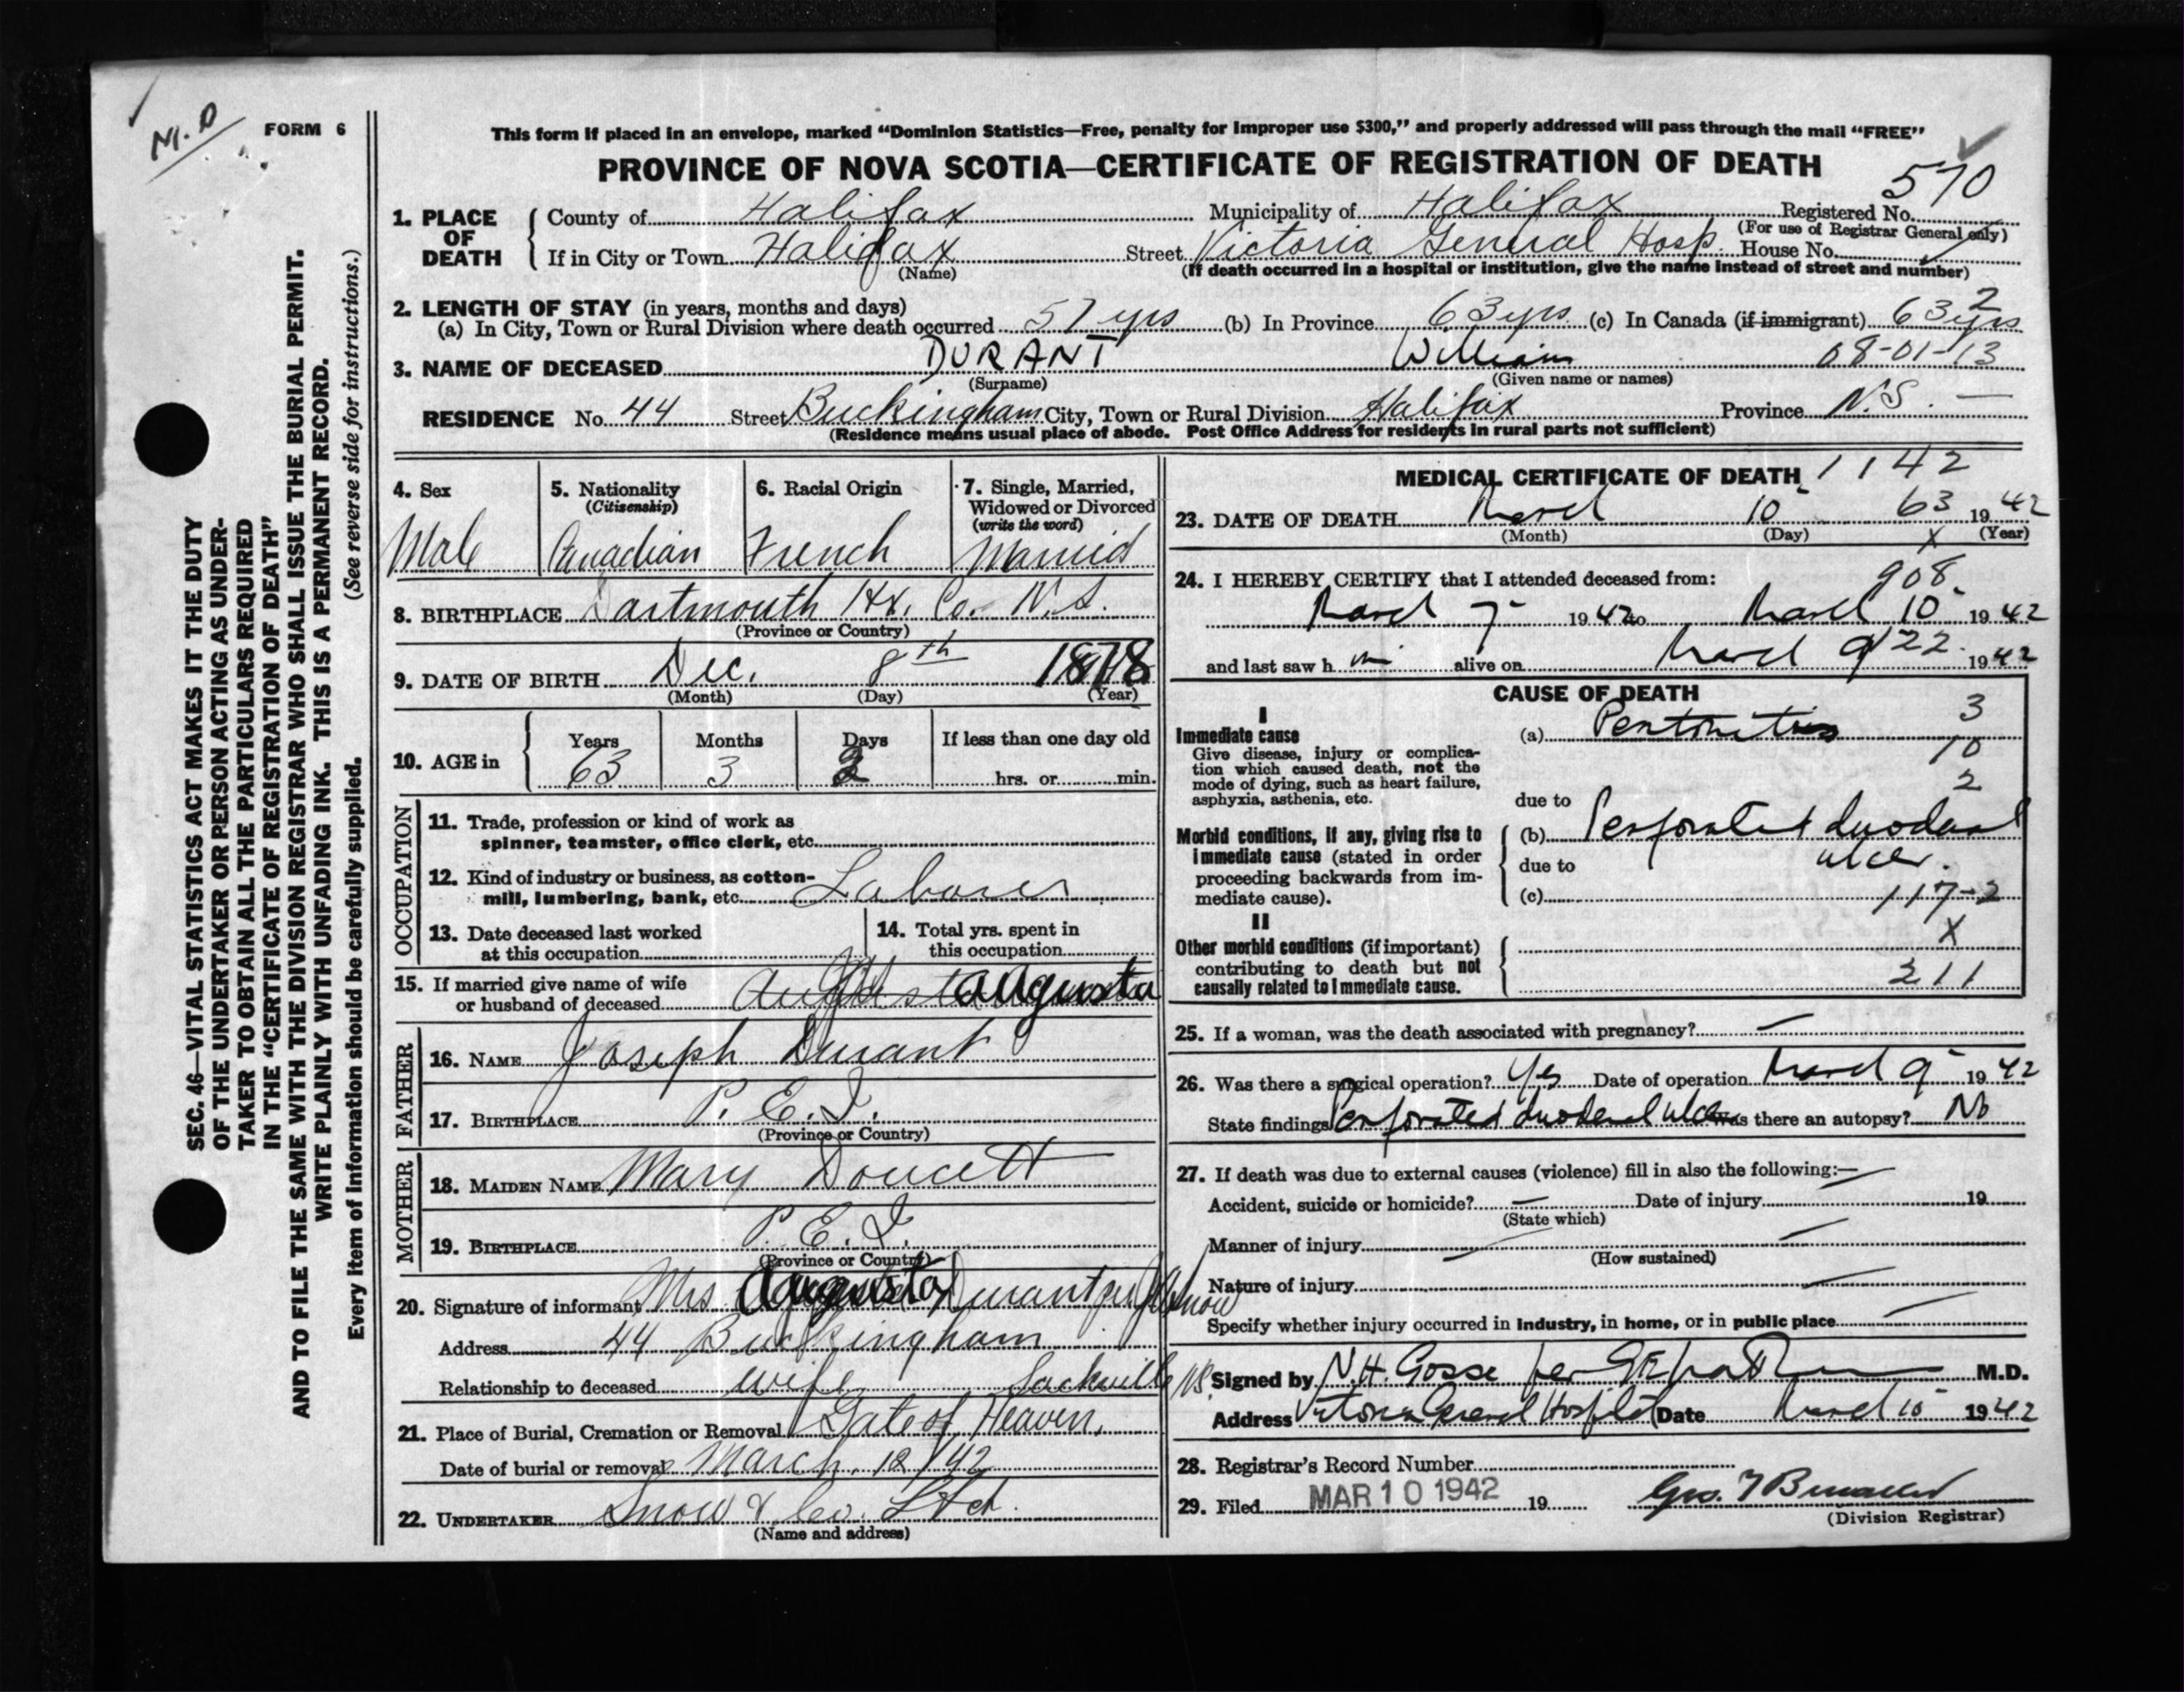 M.D
FORM 6
SEC. 46—VITAL STATISTICS ACT MAKES IT THE DUTY
OF THE UNDERTAKER OR PERSON ACTING AS UNDER-
TAKER TO OBTAIN ALL THE PARTICULARS REQUIRED
IN THE "CERTIFICATE OF REGISTRATION OF DEATH"
AND TO FILE THE SAME WITH THE DIVISION REGISTRAR WHO SHALL ISSUE THE BURIAL PERMIT.
WRITE PLAINLY WITH UNFADING INK. THIS IS A PERMANENT RECORD.
Every item of information should be carefully supplied. (See reverse side for instructions.)
This form if placed in an envelope, marked "Dominion Statistics—Free, penalty for improper use $300," and properly addressed will pass through the mail "FREE"
PROVINCE OF NOVA SCOTIA—CERTIFICATE OF REGISTRATION OF DEATH
570
1. PLACE OF DEATH County of Halifax Municipality of Halifax Registered No.
(For use of Registrar General only)
If in City or Town Halifax Street Victoria General Hosp. House No.
(Name) (If death occurred in a hospital or institution, give the name instead of street and number)
2. LENGTH OF STAY (in years, months and days) 2
(a) In City, Town or Rural Division where death occurred 57 yrs (b) In Province 63 yrs (c) In Canada (if immigrant) 63 yrs
3. NAME OF DECEASED DURANT William 08-01-13
(Surname) (Given name or names)
RESIDENCE No. 44 Street Buckingham City, Town or Rural Division Halifax Province N.S. —
(Residence means usual place of abode. Post Office Address for residents in rural parts not sufficient)
4. Sex 5. Nationality 6. Racial Origin 7. Single, Married,
(Citizenship) Widowed or Divorced
(write the word)
Male Canadian French Married
8. BIRTHPLACE Dartmouth Hx. Co. N.S.
(Province or Country)
9. DATE OF BIRTH Dec. 8th 1878
(Month) (Day) (Year)
10. AGE in Years Months Days If less than one day old
63 3 2 hrs. or min.
OCCUPATION
11. Trade, profession or kind of work as
spinner, teamster, office clerk, etc.
12. Kind of industry or business, as cotton-
mill, lumbering, bank, etc. Laborer
13. Date deceased last worked
at this occupation
14. Total yrs. spent in
this occupation
15. If married give name of wife
or husband of deceased Augusta
FATHER
16. NAME Joseph Durant
17. BIRTHPLACE P.E.I.
(Province or Country)
MOTHER
18. MAIDEN NAME Mary Doucett
19. BIRTHPLACE P.E.I.
(Province or Country)
20. Signature of informant Mrs Augusta Durant per Snow
Address 44 Buckingham
Relationship to deceased wife Sackville NS
21. Place of Burial, Cremation or Removal Gate of Heaven,
Date of burial or removal March 12/42
22. UNDERTAKER Snow & Co. Ltd.
(Name and address)
MEDICAL CERTIFICATE OF DEATH 1142
23. DATE OF DEATH March 10 63 1942
(Month) (Day) X (Year)
24. I HEREBY CERTIFY that I attended deceased from: 908
March 7 1942 to March 10 1942
and last saw him alive on March 9 22 1942
CAUSE OF DEATH
I
Immediate cause (a) Peritonitis 3
Give disease, injury or complica-
tion which caused death, not the 10
mode of dying, such as heart failure,
asphyxia, asthenia, etc. due to 2
Morbid conditions, if any, giving rise to (b) Perforated duodenal
immediate cause (stated in order due to ulcer.
proceeding backwards from im-
mediate cause). (c) 117-2
II
Other morbid conditions (if important) X
contributing to death but not
causally related to immediate cause. 211
25. If a woman, was the death associated with pregnancy? —
26. Was there a surgical operation? Yes Date of operation March 9 1942
State findings Perforated duodenal ulcer Was there an autopsy? No
27. If death was due to external causes (violence) fill in also the following:—
Accident, suicide or homicide? — Date of injury 19
(State which)
Manner of injury
(How sustained)
Nature of injury
Specify whether injury occurred in industry, in home, or in public place
Signed by N.H. Gosse per M.D.
Address Victoria General Hospital Date March 10 1942
28. Registrar's Record Number
29. Filed MAR 10 1942 19
(Division Registrar)